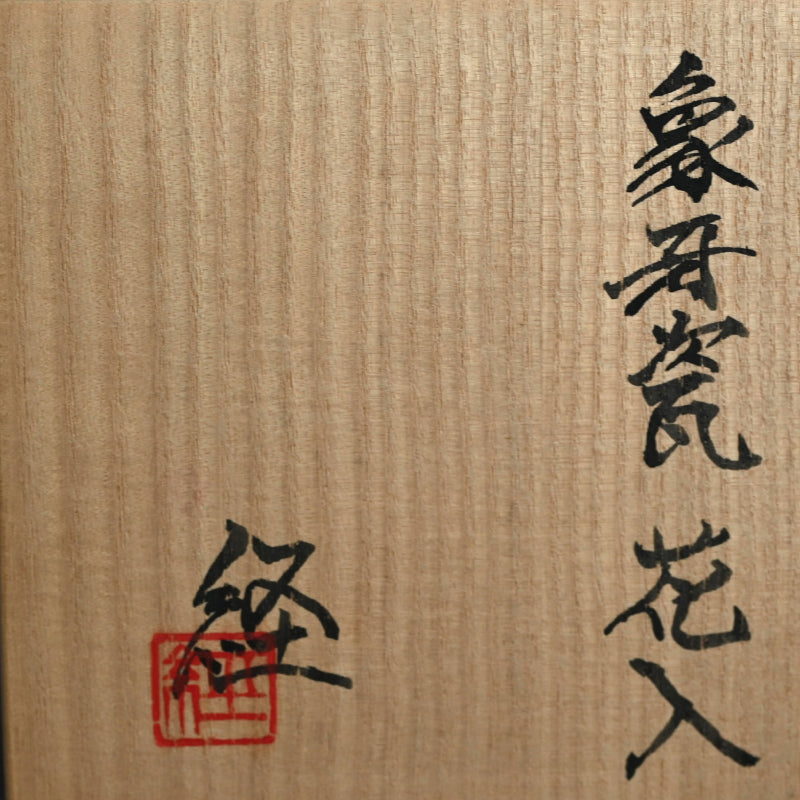 象牙瓷 花入
経
経